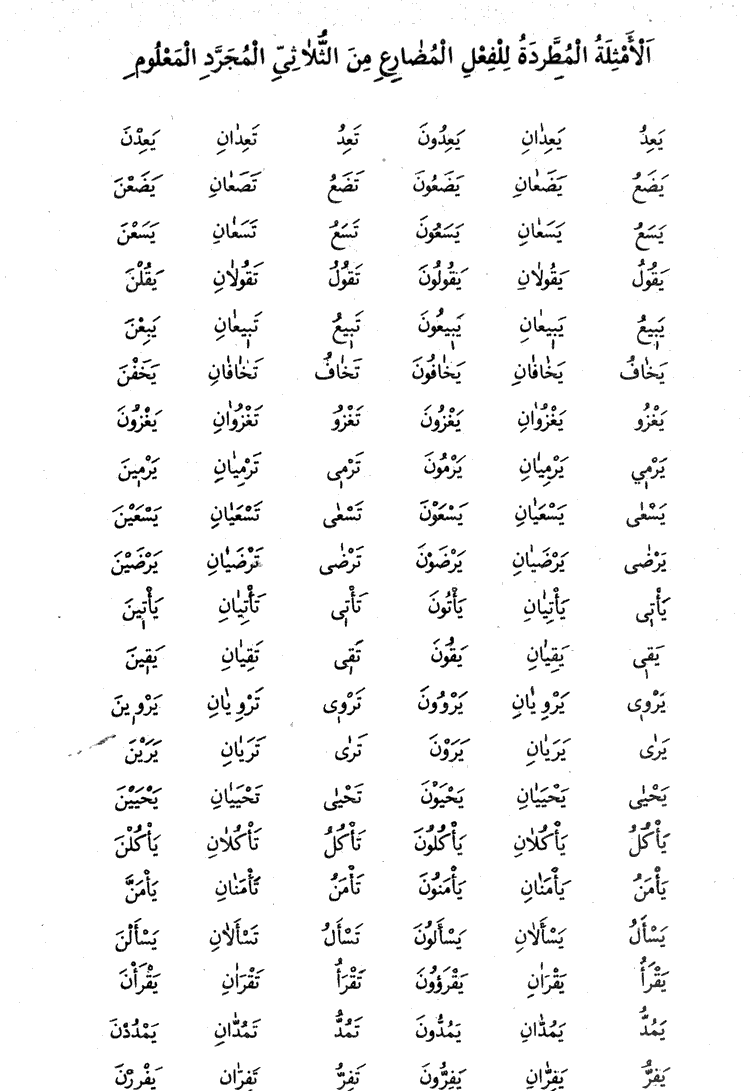 اَلْأَمْثِلَةُ الْمُطَّرِدَةُ لِلْفِعْلِ الْمُضٰارِعِ مِنَ الثُّلاٰثِيِّ الْمُجَرَّدِ الْمَعْلُومِ
يَعِدُ يَعِدٰانِ يَعِدُونَ تَعِدُ تَعِدٰانِ يَعِدْنَ
يَضَعُ يَضَعٰانِ يَضَعُونَ تَضَعُ تَضَعٰانِ يَضَعْنَ
يَسَعُ يَسَعٰانِ يَسَعُونَ تَسَعُ تَسَعٰانِ يَسَعْنَ
يَقُولُ يَقُولاٰنِ يَقُولُونَ تَقُولُ تَقُولاٰنِ يَقُلْنَ
يَبٖيعُ يَبٖيعٰانِ يَبٖيعُونَ تَبٖيعُ تَبٖيعٰانِ يَبِعْنَ
يَخٰافُ يَخٰافٰانِ يَخٰافُونَ تَخٰافُ تَخٰافٰانِ يَخَفْنَ
يَغْزُو يَغْزُوٰانِ يَغْزُونَ تَغْزُو تَغْزُوٰانِ يَغْزُونَ
يَرْمٖي يَرْمِيٰانِ يَرْمُونَ تَرْمٖى تَرْمِيٰانِ يَرْمٖينَ
يَسْعٰى يَسْعَيٰانِ يَسْعَوْنَ تَسْعٰى تَسْعَيٰانِ يَسْعَيْنَ
يَرْضٰى يَرْضَيٰانِ يَرْضَوْنَ تَرْضٰى تَرْضَيٰانِ يَرْضَيْنَ
يَأْتٖى يَأْتِيٰانِ يَأْتُونَ تَأْتٖى تَأْتِيٰانِ يَأْتٖينَ
يَقٖى يَقِيٰانِ يَقُونَ تَقٖى تَقِيٰانِ يَقٖينَ
يَرْوٖى يَرْوِيٰانِ يَرْوُونَ تَرْوٖى تَرْوِيٰانِ يَرْوٖينَ
يَرٰى يَرَيٰانِ يَرَوْنَ تَرٰى تَرَيٰانِ يَرَيْنَ
يَحْيٰى يَحْيَيٰانِ يَحْيَوْنَ تَحْيٰى تَحْيَيٰانِ يَحْيَيْنَ
يَأْكُلُ يَأْكُلاٰنِ يَأْكُلُونَ تَأْكُلُ تَأْكُلاٰنِ يَأْكُلْنَ
يَأْمَنُ يَأْمَنٰانِ يَأْمَنُونَ تَأْمَنُ تَأْمَنٰانِ يَأْمَنَّ
يَسْأَلُ يَسْأَلاٰنِ يَسْأَلُونَ تَسْأَلُ تَسْأَلاٰنِ يَسْأَلْنَ
يَقْرَأُ يَقْرَاٰنِ يَقْرَؤُونَ تَقْرَأُ تَقْرَاٰنِ يَقْرَأْنَ
يَمُدُّ يَمُدّٰانِ يَمُدُّونَ تَمُدُّ تَمُدّٰانِ يَمْدُدْنَ
يَفِرُّ يَفِرّٰانِ يَفِرُّونَ تَفِرُّ تَفِرّٰانِ يَفْرِرْنَ